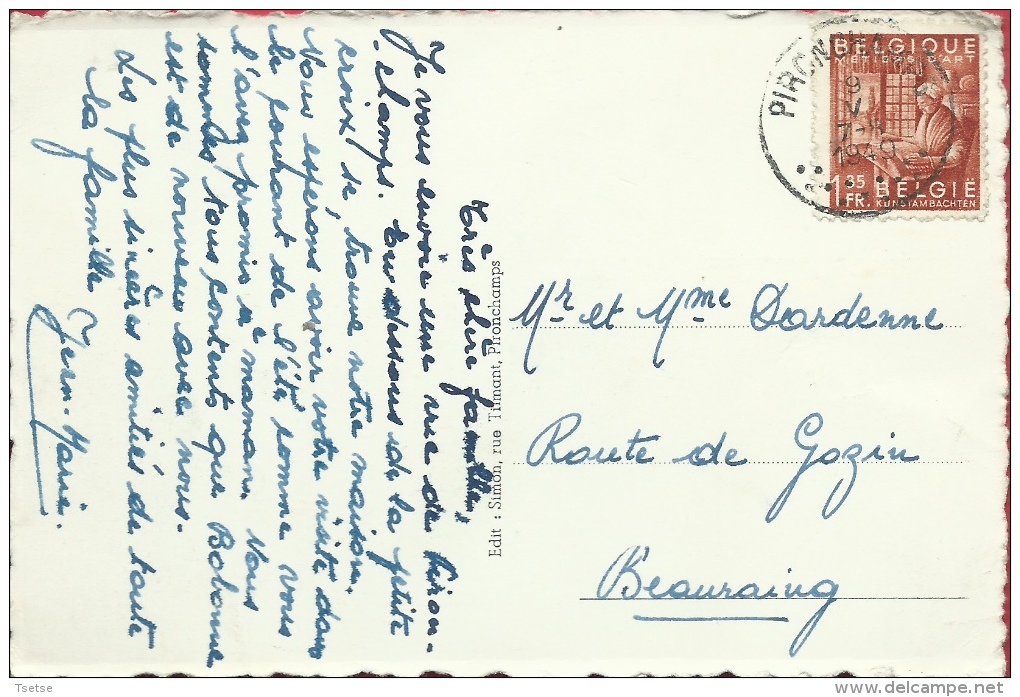 Très chère famille,
Je vous envoie une vue de Piron-
-champs. Au dessous de la petite
croix se trouve notre maison.
Nous espérons avoir votre visite dans
le courant de l'été comme vous
l'avez promis à maman. Nous
sommes tous contents que Bobonne
est de nouveau avec nous.
Les plus sincères amitiés de toute
la famille
Jean-Marie.
Edit : Simon, rue Tilmant, Pironchamps
PIRONCHAMPS
9
V
1949
BELGIQUE
METIERS D'ART
1.35
FR.
BELGIË
KUNSTAMBACHTEN
Mr et Mme Dardenne
Route de Gozin
Beauraing
Tsetse
delcampe.net